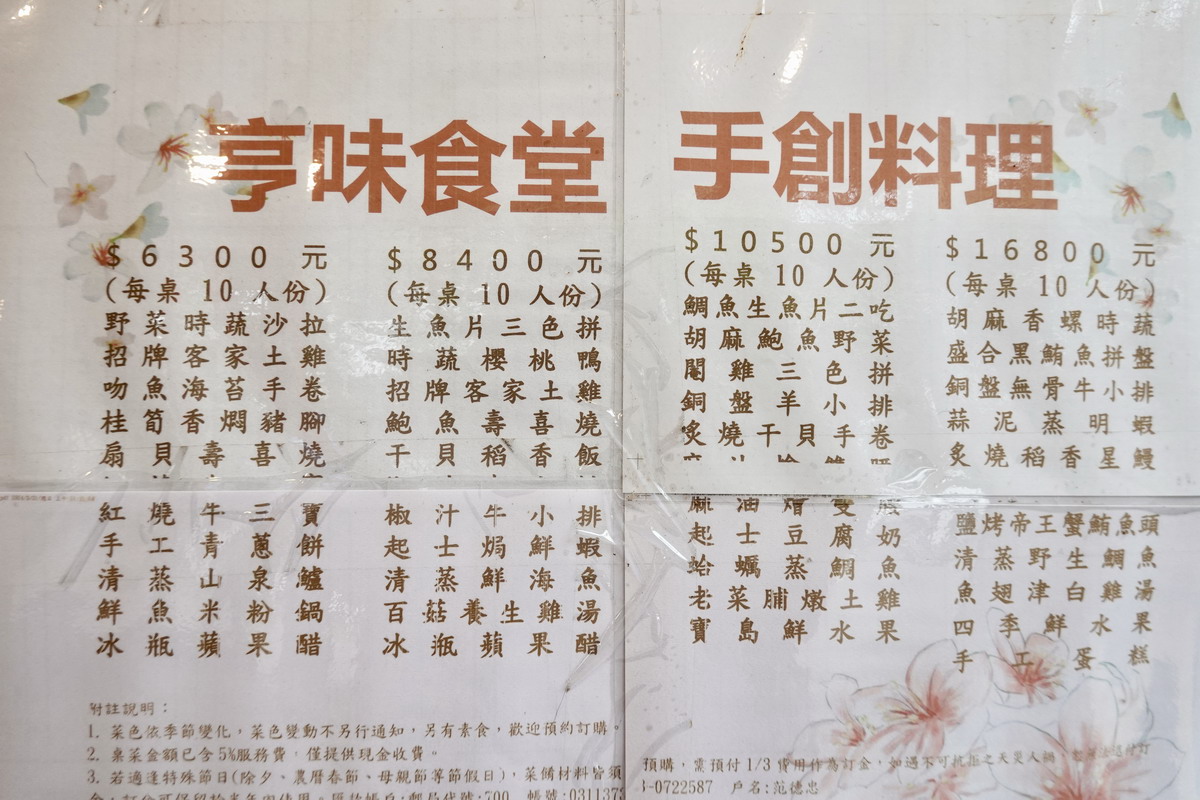 亨味食堂 手創料理
$6300 元
(每桌 10 人份)
野菜時蔬沙拉
招牌客家土雞
吻魚海苔手卷
桂筍香燜豬腳
扇貝壽喜燒
紅燒牛三寶
手工青蔥餅
清蒸山泉鱸
鮮魚米粉鍋
冰瓶蘋果醋
$8400 元
(每桌 10 人份)
生魚片三色拼
時蔬櫻桃鴨
招牌客家土雞
鮑魚壽喜燒
干貝稻香飯
椒汁牛小排
起士焗鮮蝦
清蒸鮮海魚
百菇養生雞湯
冰瓶蘋果醋
$10500 元
(每桌 10 人份)
鯛魚生魚片二吃
胡麻鮑魚野菜
閹雞三色拼
銅盤羊小排
炙燒干貝手卷
麻油燴雙
起士豆腐奶
蛤蠣蒸鯛魚
老菜脯燉土雞
寶島鮮水果
$16800 元
(每桌 10 人份)
胡麻香螺時蔬
盛合黑鮪魚拼盤
銅盤無骨牛小排
蒜泥蒸明蝦
炙燒稻香星鰻
鹽烤帝王蟹鮪魚頭
清蒸野生鯛魚
魚翅津白雞湯
四季鮮水果
手工蛋糕
附註說明：
1. 菜色依季節變化，菜色變動不另行通知，另有素食，歡迎預約訂購。
2. 桌菜金額已含 5%服務費，僅提供現金收費。
3. 若適逢特殊節日(除夕、農曆春節、母親節等節假日)，菜餚材料皆須
預購，需預付 1/3 費用作為訂金，如遇不可抗拒之天災人禍
匯款帳戶:郵局代號:700 帳號:0311373
-0722587 戶名:范德忠